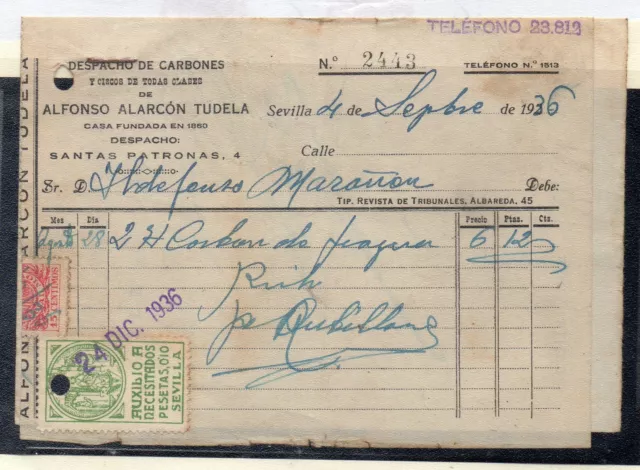 TELÉFONO 23.813
DESPACHO DE CARBONES
Y CISCOS DE TODAS CLASES
DE
ALFONSO ALARCÓN TUDELA
CASA FUNDADA EN 1860
DESPACHO:
SANTAS PATRONAS, 4
N.º 2443 TELÉFONO N.º 1513
Sevilla 4 de Sepbre de 1936
Calle
Sr. D. Ildefonso Marañon Debe:
TIP. REVISTA DE TRIBUNALES, ALBAREDA, 45
Mes Día Precio Ptas. Cts.
Agost 28 2 H Carbon de fragua 6 12
Recibí
p
15 CENTIMOS
24 DIC. 1936
AUXILIO A
NECESITADOS
PESETAS, 0'10
SEVILLA
ALFONSO ALARCÓN TUDELA